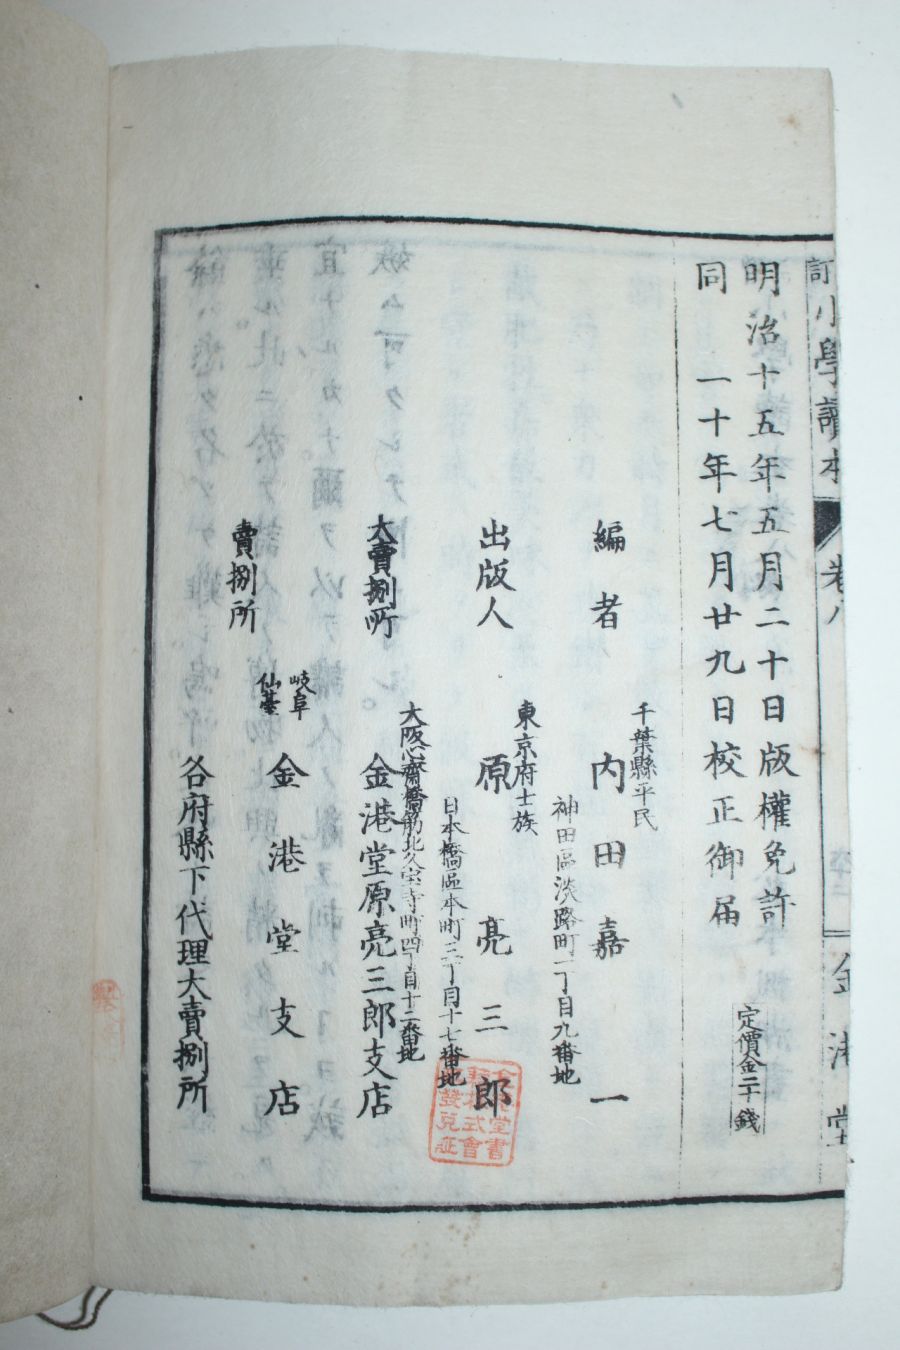 訂 小學讀本 卷八 金港堂
明治十五年五月二十日版權免許
同 一十年七月廿九日校正御届
定價金二十錢
編者
千葉縣平民
內田嘉一
神田區淡路町一丁目九番地
出版人
東京府士族
原亮三郎
日本橋區本町三丁目十七番地
大賣捌所
大阪心齋橋筋北久宝寺町四丁目十三番地
金港堂原亮三郎支店
賣捌所
岐阜
仙臺
金港堂支店
各府縣下代理大賣捌所